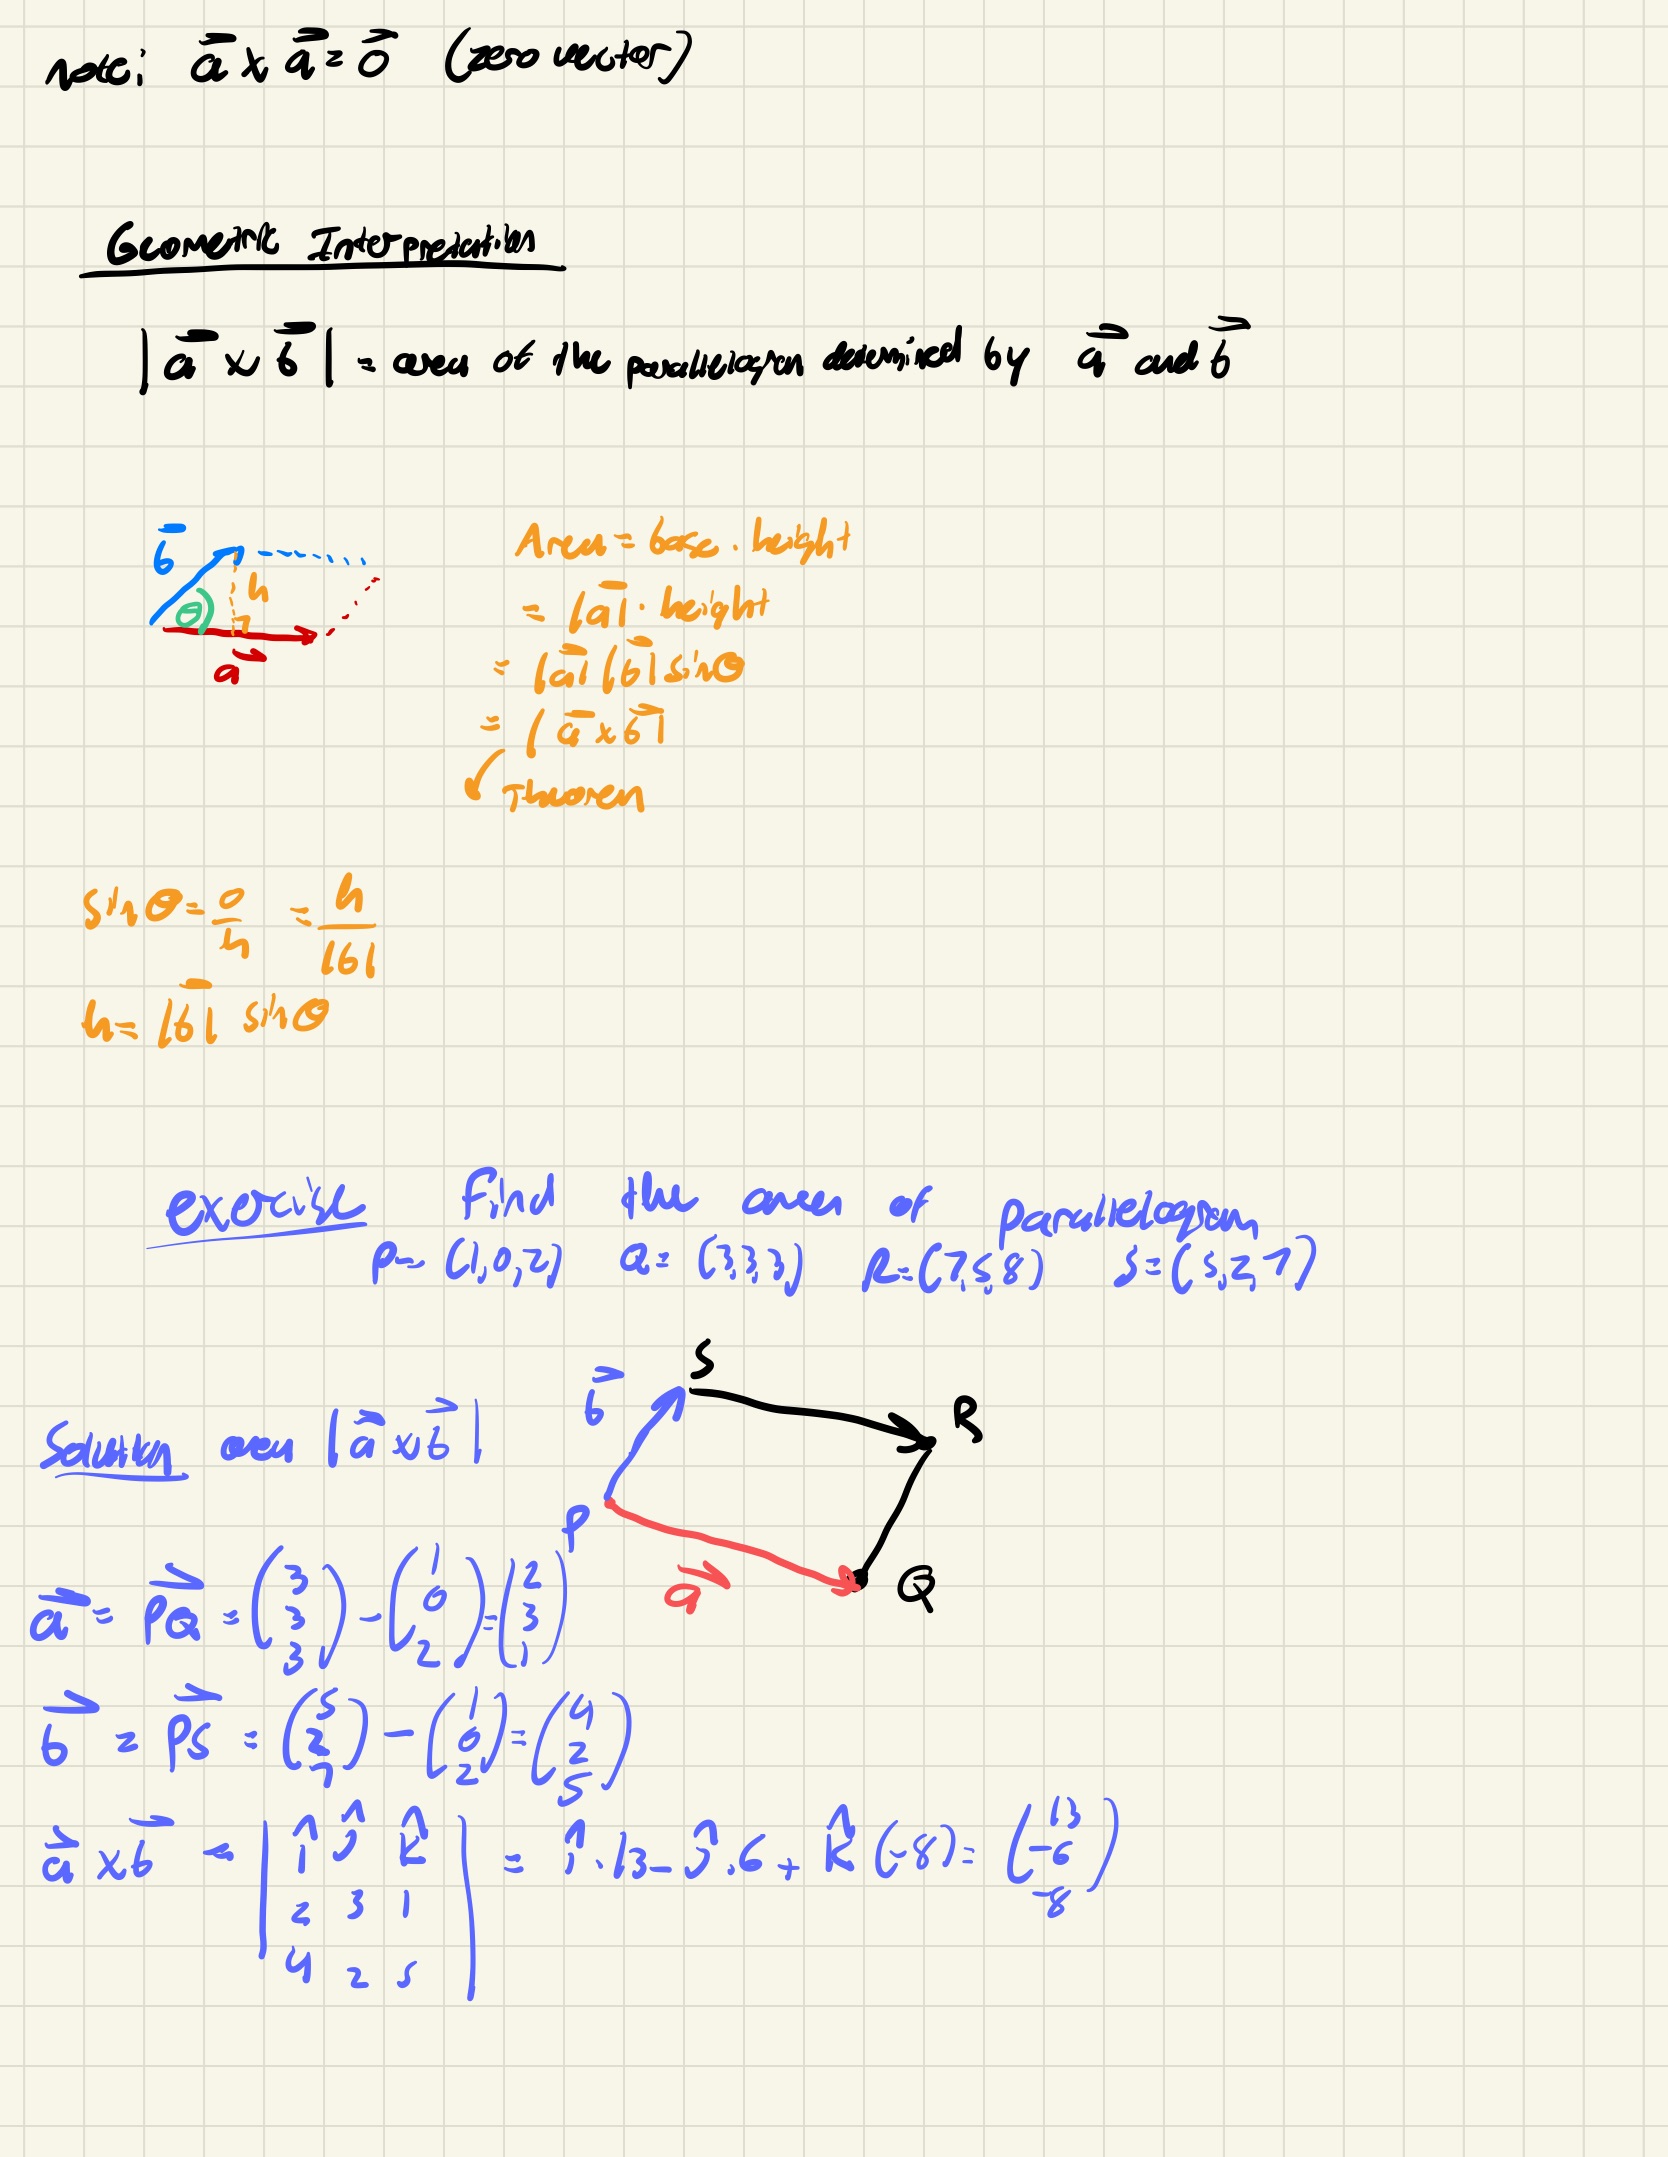 note: a⃗ x a⃗ = o⃗ (zero vector)
Geometric Interpretation
| a⃗ x b⃗ | = area of the parallelogram determined by a⃗ and b⃗
b⃗
h
θ
a⃗
Area = base . height
= |a⃗| . height
= |a⃗| |b⃗| sinθ
= | a⃗ x b⃗ |
Theorem
sin θ = o/h = h/|b|
h = |b⃗| sin θ
exercise Find the area of parallelogram
P= (1,0,2) Q= (3,3,3) R=(7,5,8) S=(5,2,7)
Solution area | a⃗ x b⃗ |
S
b⃗
R
P
a⃗
Q
a⃗ = PQ⃗ = (3 3 3) - (1 0 2) = (2 3 1)
b⃗ = PS⃗ = (5 2 7) - (1 0 2) = (4 2 5)
a⃗ x b⃗ = | î ĵ k̂ | = î . 13 - ĵ . 6 + k̂ (-8) = (13 -6 -8)
2 3 1
4 2 5